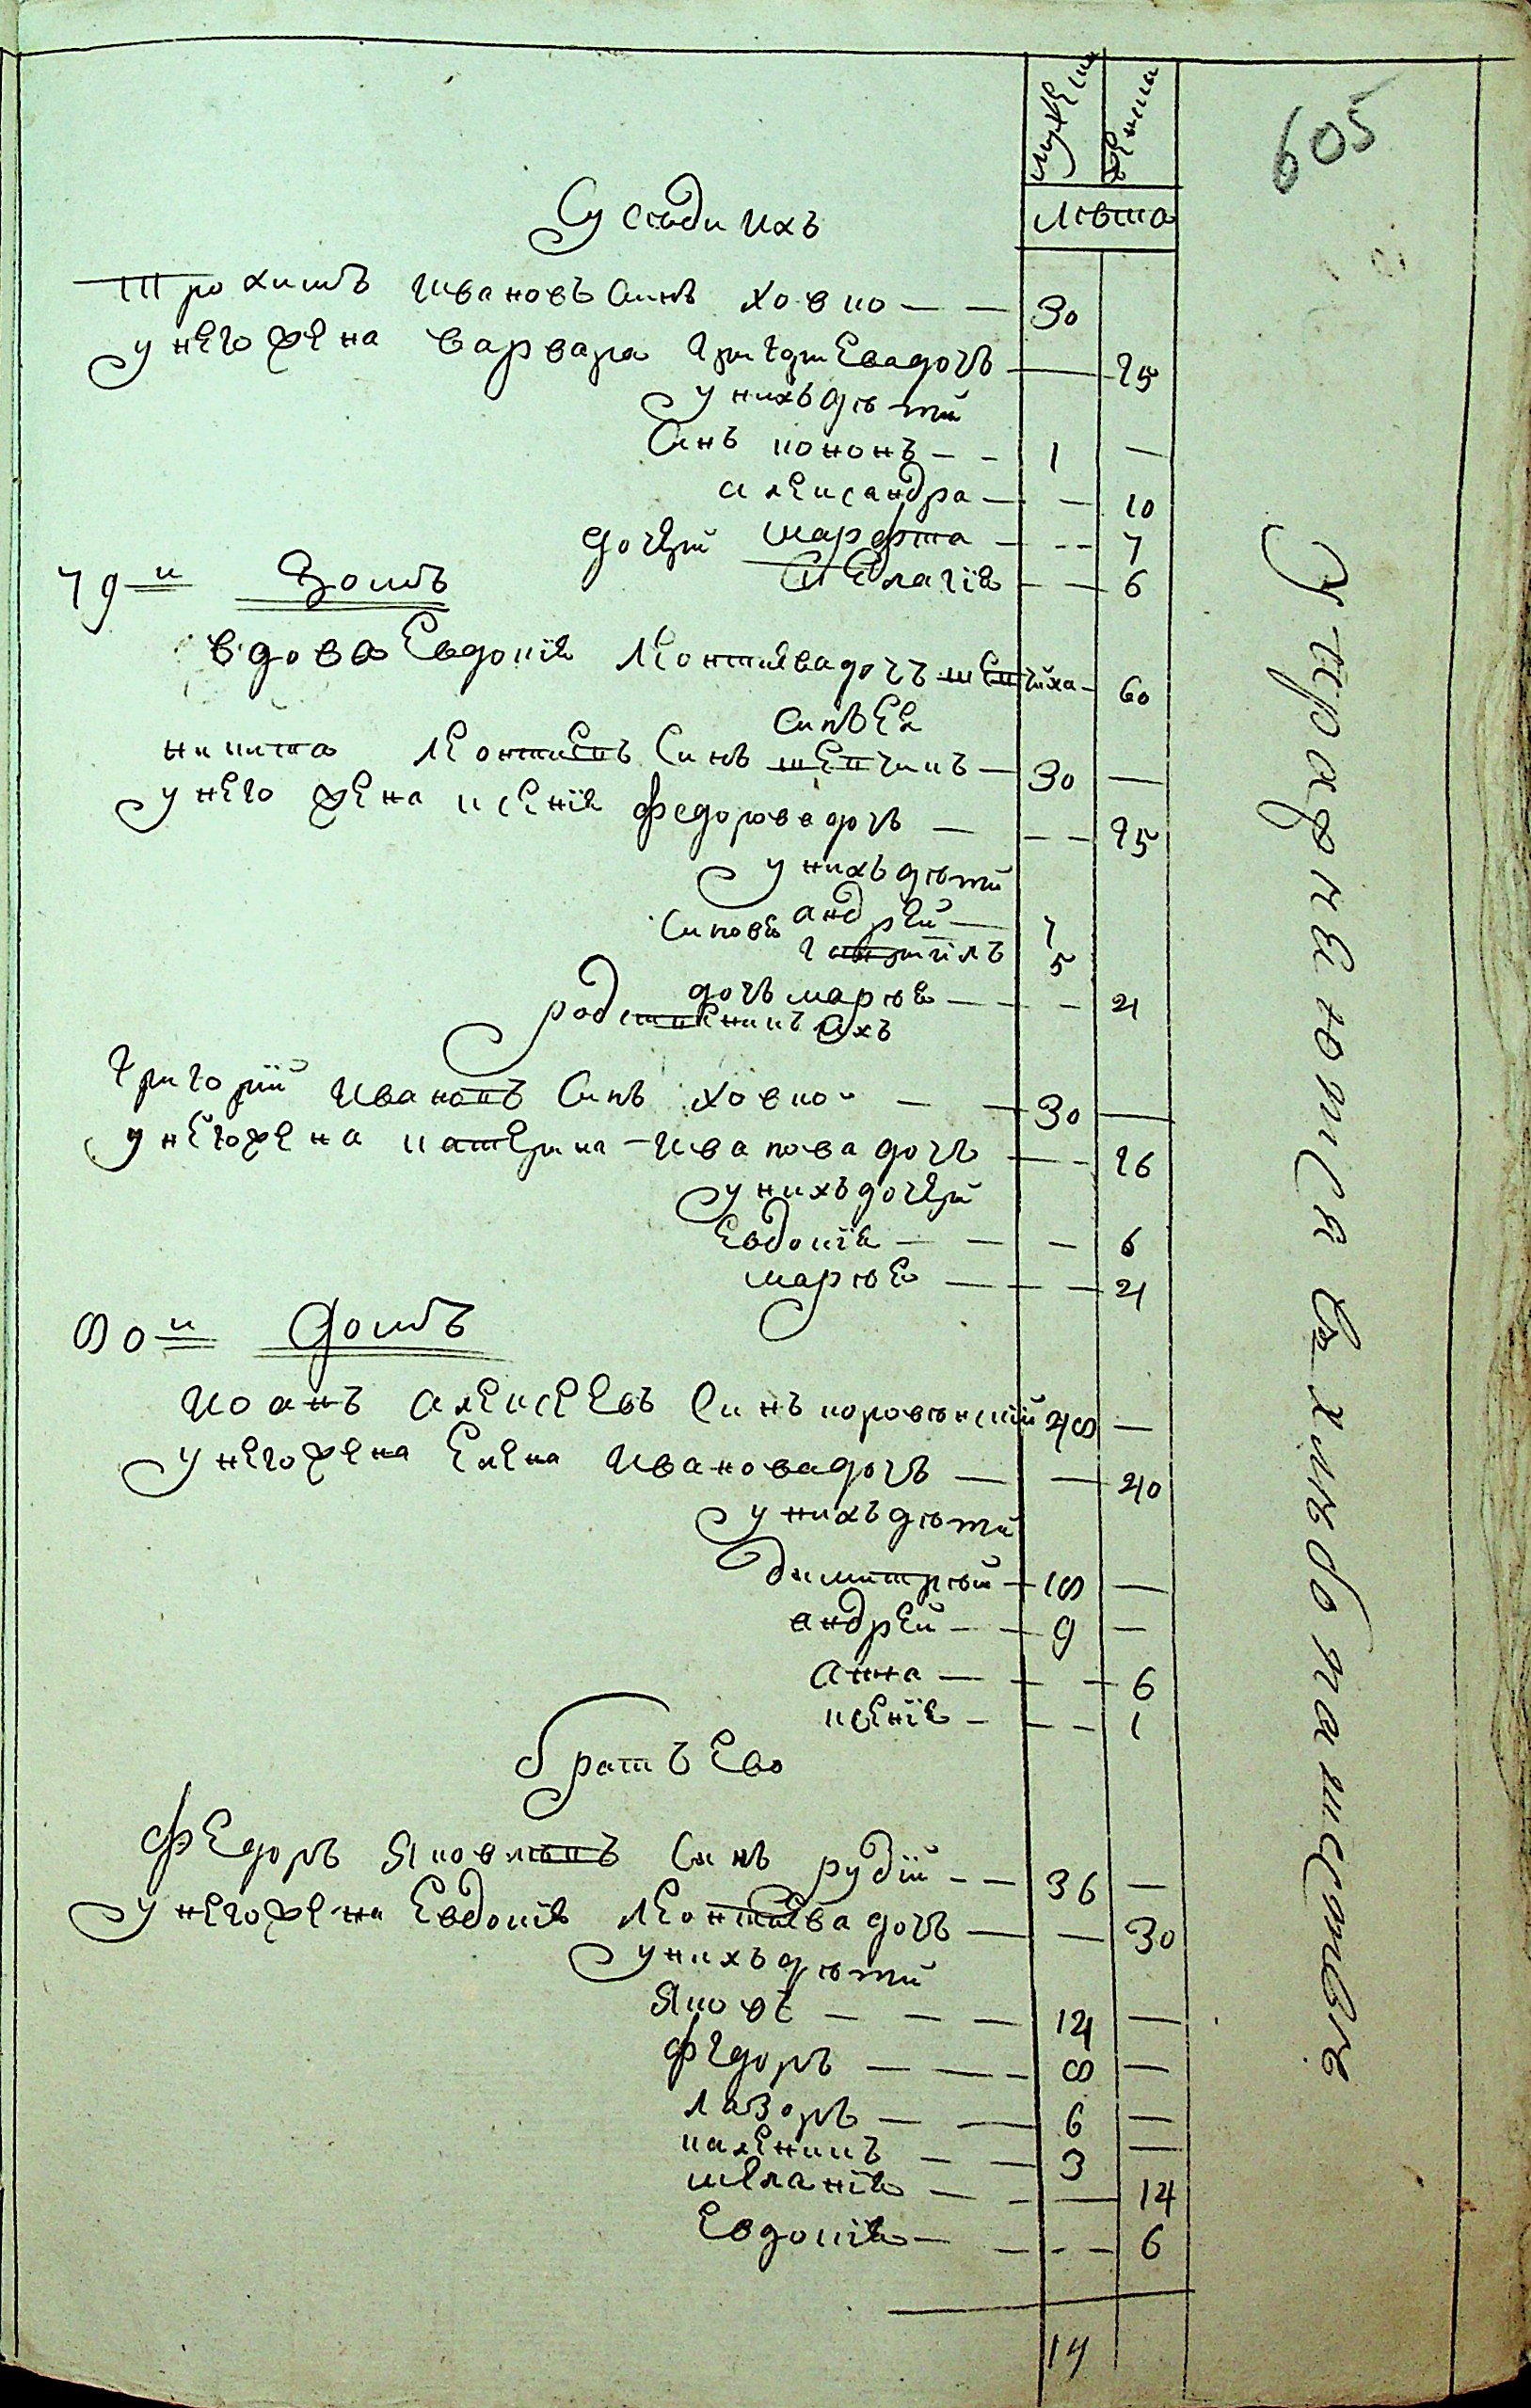 605
мужеска
женска
лѣта
Сусѣди ихъ
Трохимъ Ивановъ Синъ Ховпо — — 30
у него жена варвара григориева дочь — 25
у нихъ дѣти
Синъ кононъ — — 1 —
александра — — 10
дочери марфта — — 7
пелагія — — 6
79й Домъ
вдова Евдокія леонтиева дочь 60
Синъ ея
никита леонтиевъ Синъ — 30 —
у него жена ксенія федорова дочь — — 25
у нихъ дѣти
Синове андрей — 7
гавриилъ 5
дочь марѣя — — 4
родственникъ ихъ
григорій Ивановъ Синъ Ховпо — — 30 —
у него жена катерина Иванова дочь — — 26
у нихъ дочери
Евдокія — — — 6
марѣя — — — 4
80й Домъ
Иоанъ алексеевъ Синъ коровѣнский 48 —
у него жена Елена Иванова дочь — — 40
у нихъ дѣти
димитрѣй — 18 —
андрей — — 9 —
анна — — — 6
ксенія — — — 1
братъ Ево
Федоръ Яковлѣвъ Синъ рудій — — 36 —
у него жена Евдокія леонтиева дочь — — 30
у нихъ дѣти
Яковъ — — — 14 —
федоръ — — — 8 —
лазоръ — — 6 —
каленикъ — — 3 —
меланія — — — 14
Евдокія — — — — 6